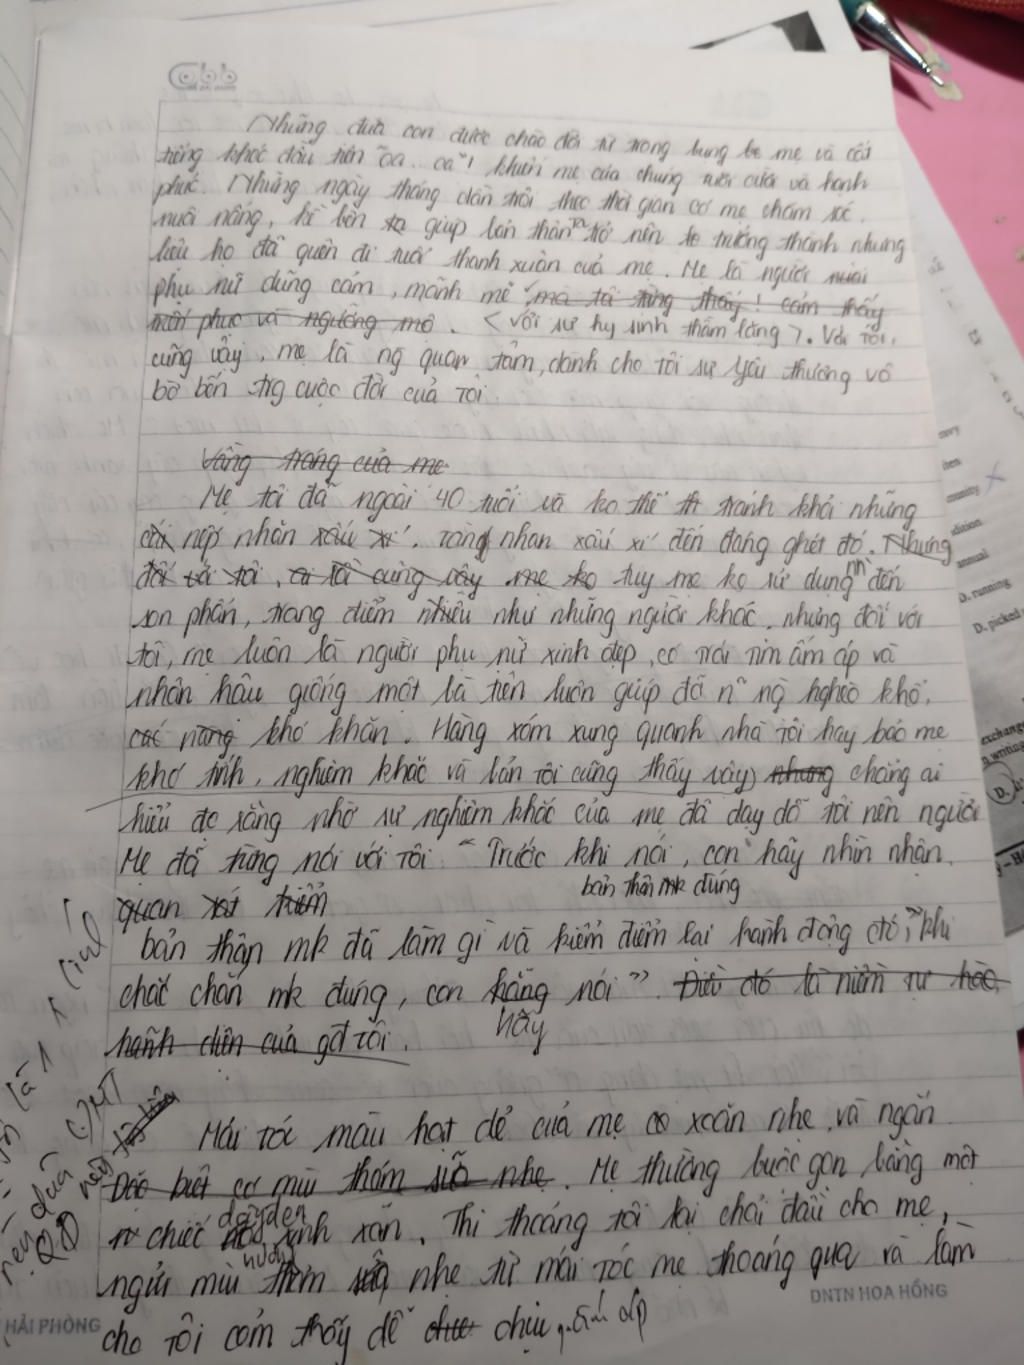 Những đứa con được chào đời từ trong bụng bẹ mẹ và cất
tiếng khóc đầu tiên "oa.. oa"! khiến mẹ của chúng tươi cười và hạnh
phúc. Những ngày tháng dần trôi theo thời gian có mẹ chăm sóc
nuôi nấng, kề bên giúp bản thân trở nên trưởng thành nhưng
liệu họ đã quên đi tuổi thanh xuân của mẹ. Mẹ là người
phụ nữ dũng cảm, mạnh mẽ mà tôi từng thấy! cảm thấy
phục và ngưỡng mộ. <với sự hy sinh thầm lặng>. Với tôi,
cũng vậy, mẹ là ng quan tâm, dành cho tôi sự yêu thương vô
bờ bến trg cuộc đời của tôi.
Vầng trăng của mẹ
Mẹ tôi đã ngoài 40 tuổi và ko thể tránh khỏi những
nếp nhăn xấu xí. nhăn xấu xí đến đáng ghét đó. Nhưng
đối với tôi, cũng vậy mẹ ko tuy mẹ ko sử dụng đến
son phấn, trang điểm nhiều như những người khác, nhưng đối với
tôi, mẹ luôn là người phụ nữ xinh đẹp, có trái tim ấm áp và
nhân hậu giống một bà tiên luôn giúp đỡ ng nghèo khổ,
khó khăn. Hàng xóm xung quanh nhà tôi hay bảo mẹ
khó tính, nghiêm khắc và bản tôi cũng thấy vậy) nhưng chẳng ai
hiểu đc rằng nhờ sự nghiêm khắc của mẹ đã dạy dỗ tôi nên người
Mẹ đã từng nói với tôi "Trước khi nói, con hãy nhìn nhận
bản thân mk đúng
quan
bản thân mk đã làm gì và kiểm điểm lại hành động đó, khi
chắc chắn mk đúng, con hẵng nói". Điều đó là niềm tự hào,
hãy
hãnh diện của gđ tôi.
Mái tóc màu hạt dẻ của mẹ xoăn nhẹ và ngắn
Đặc biệt có mùi thơm nhẹ. Mẹ thường buộc gọn bằng một
dây đen
chiếc xinh xắn. Thi thoảng tôi lại chải đầu cho mẹ,
hương
ngửi mùi thơm nhẹ từ mái tóc mẹ thoáng qua và làm
cho tôi cảm thấy dễ chịu, ấm áp
HẢI PHÒNG
DNTN HOA HỒNG
D. running
D. picked